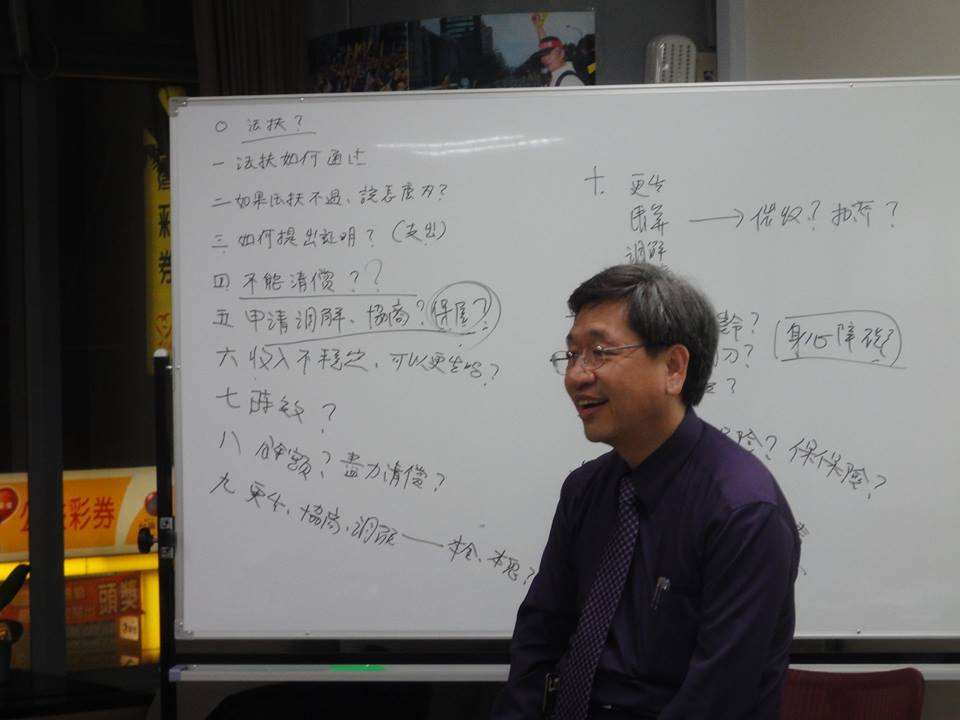 0 法扶?
一 法扶如何通过
二 如果法扶不過、該怎麼办?
三 如何提出証明? (支出)
四 不能清償??
五 申請調解、協商? 保屋?
六 收入不穩定, 可以更生嗎?
七 陳報?
八 餘額? 盡力清償?
九 更生、協商、調解 — 本金、本息?
十、更生
調解
→ 催收? 扣薪?
齡?
身心障礙?
保險? 保保險?
彩券
公益彩券
頭獎